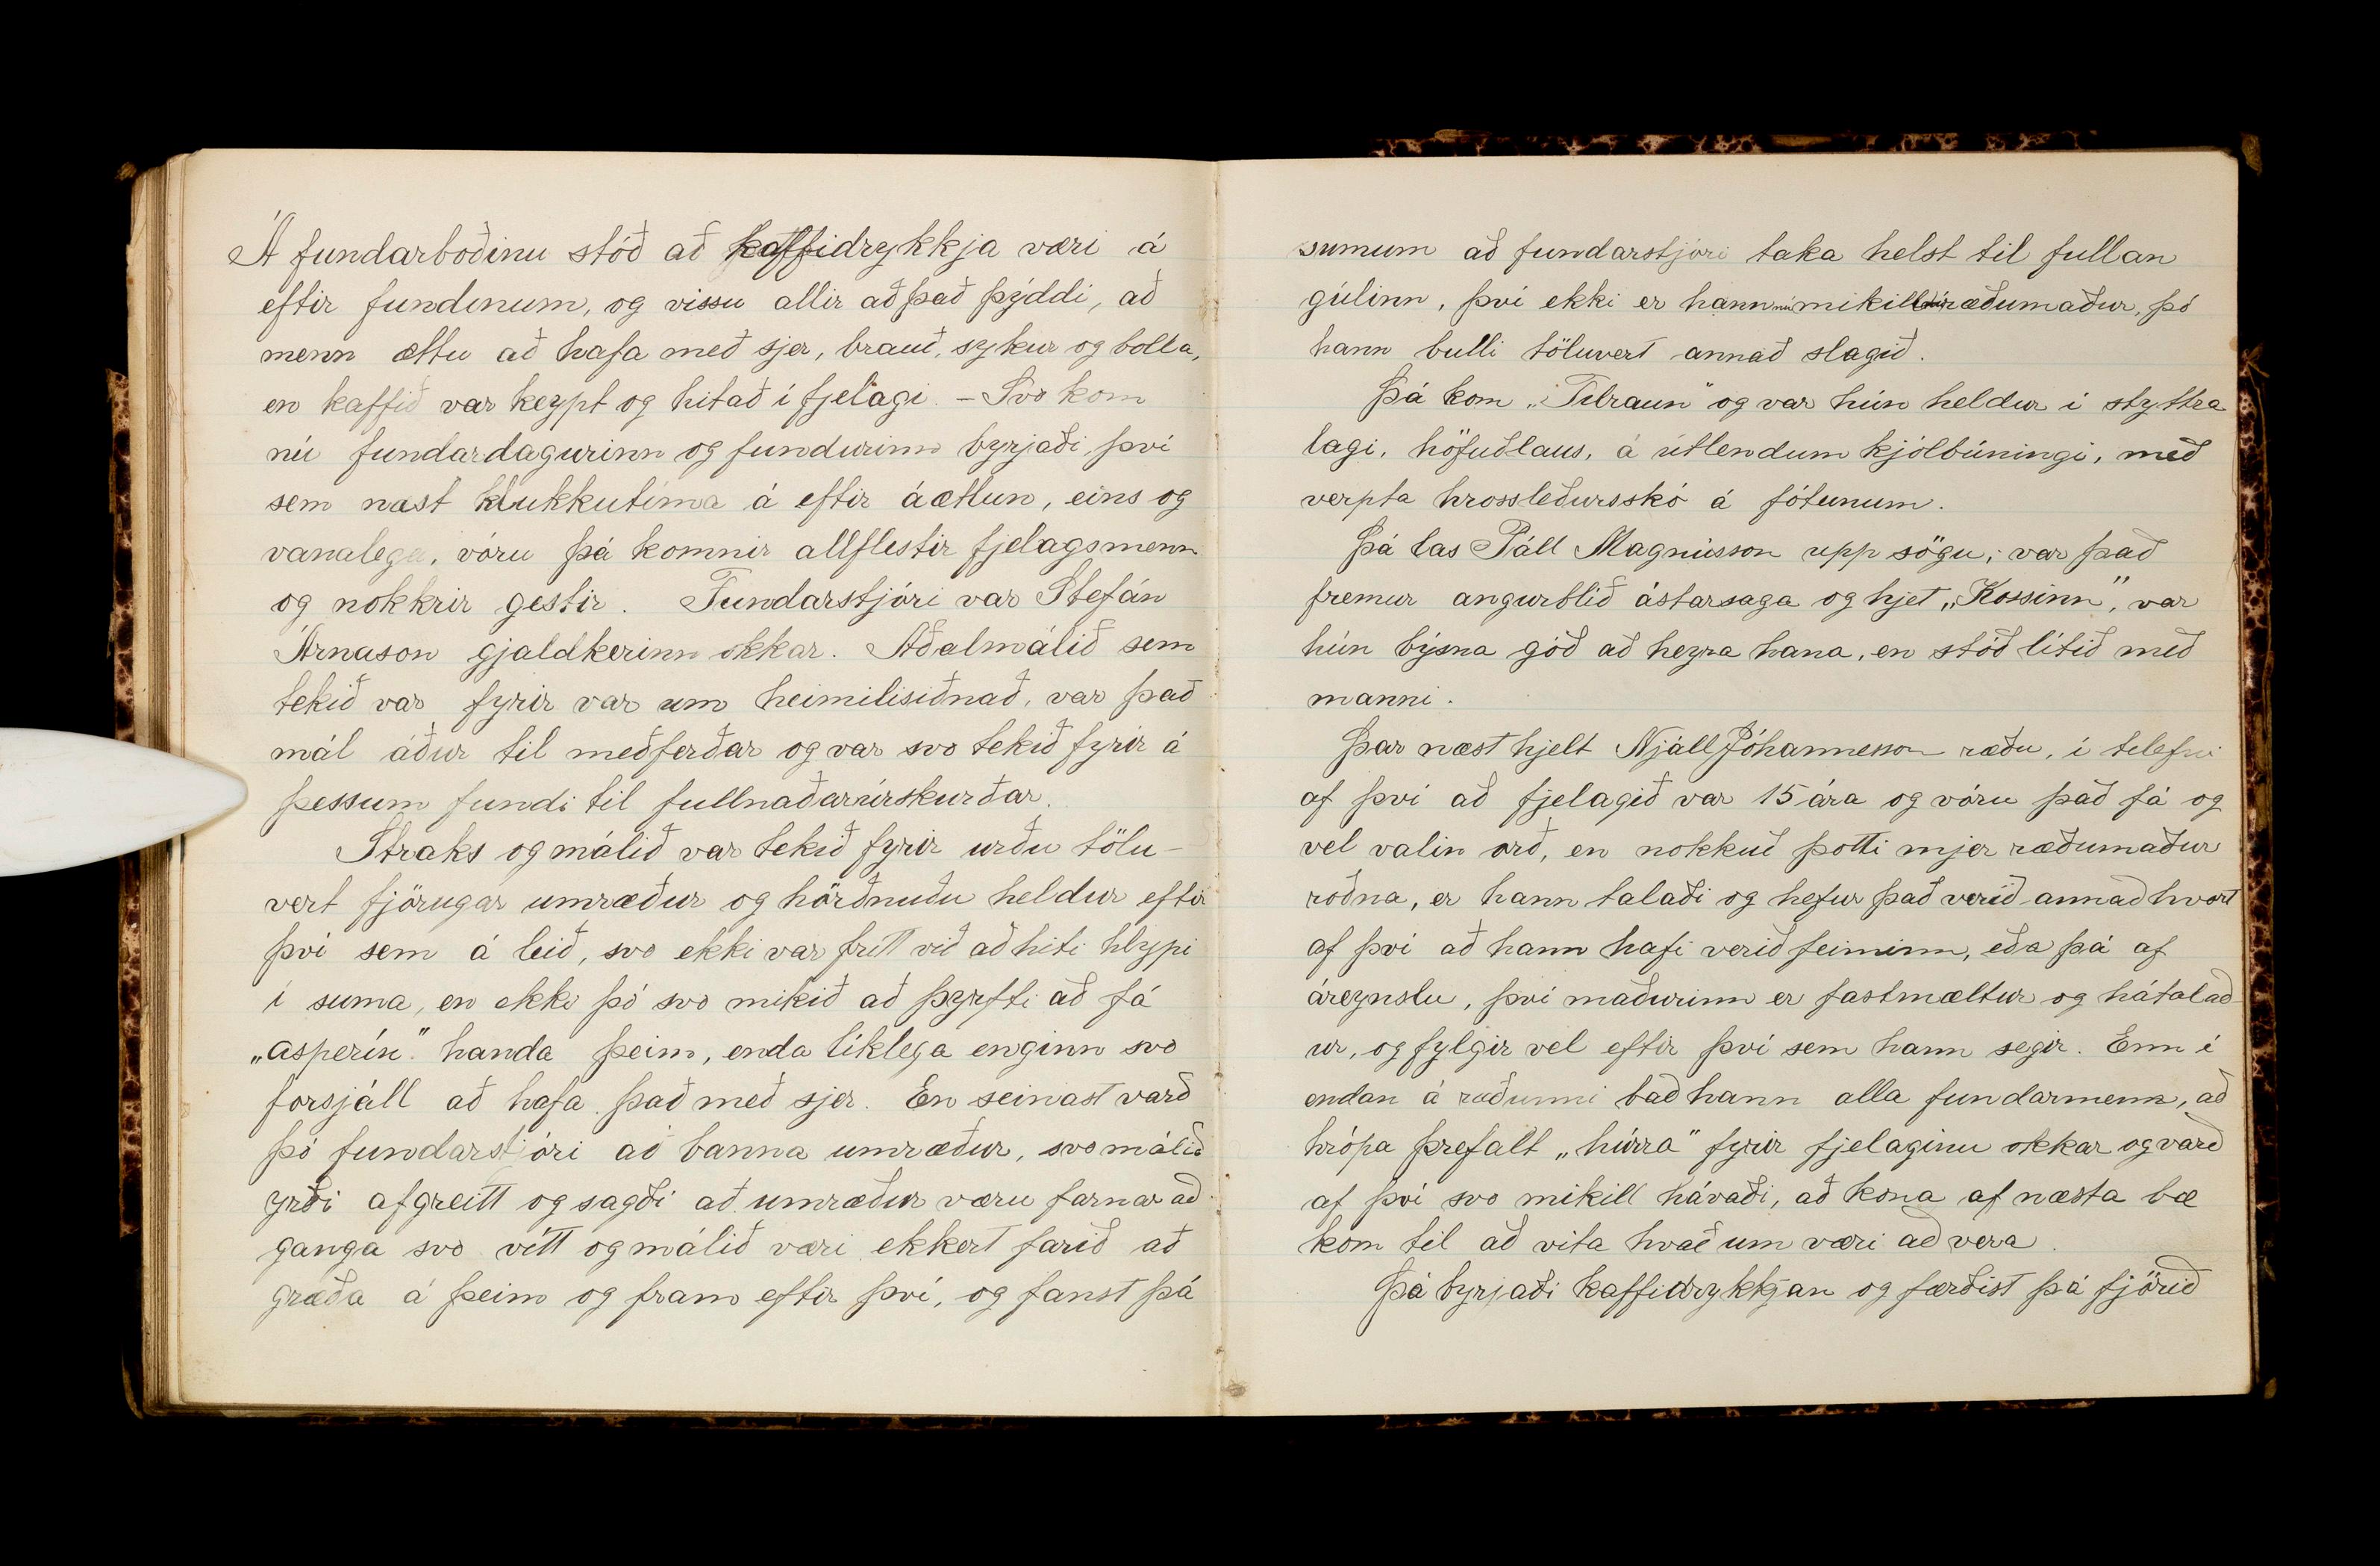 Á fundarboðinu stóð að kaffidrykkja væri á
eftir fundinum, og vissu allir að það þýddi, að
menn ættu að hafa með sjer, brauð, sykur og bolla,
en kaffið var keypt og hitað í fjelagi. - Svo kom
nú fundardagurinn og fundurinn byrjaði, því
sem næst klukkutíma á eftir áætlun, eins og
vanalega, vóru þá komnir allflestir fjelagsmenn
og nokkrir gestir. Fundarstjóri var Stefán
Árnason gjaldkerinn okkar. Aðalmálið sem
tekið var fyrir var um heimilisiðnað, var það
mál áður til meðferðar og var svo tekið fyrir á
þessum fundi til fullnaðarúrskurðar.
Straks og málið var tekið fyrir urðu tölu-
vert fjörugar umræður og hörðnuðu heldur eftir
því sem á leið, svo ekki var frítt við að hiti hlypi
í suma, en ekki þó svo mikið að þyrfti að fá
„asperín" handa þeim, enda líklega enginn svo
forsjáll að hafa það með sjer. En seinast varð
þó fundarstjóri að banna umræður, svo málið
yrði afgreitt og sagði að umræður væru farnar að
ganga svo vítt og málið væri ekkert farið að
græða á þeim og fram eftir því, og fanst þá
sumum að fundarstjóri taka helst til fullan
gúlinn, því ekki er hann nú mikill ræðumaður, þó
hann bulli töluvert annað slagið.
Þá kom „Tilraun" og var hún heldur í styttra
lagi, höfuðlaus, á útlendum kjólbúningi, með
verpta hrossleðursskó á fótunum.
Þá las Páll Magnússon upp sögu; var það
fremur angurblíð ástarsaga og hjet „Kossinn", var
hún býsna góð að heyra hana, en stóð lítið með
manni.
Þar næst hjelt Njáll Jóhannesson ræðu, í tilefni
af því að fjelagið var 15 ára og vóru það fá og
vel valin orð, en nokkuð þótti mjer ræðumaður
roðna, er hann talaði og hefur það verið annað hvort
af því að hann hafi verið feiminn, eða þá af
áreynslu, því maðurinn er fastmæltur og hátalað-
ur, og fylgir vel eftir því sem hann segir. Enn í
endan á ræðunni bað hann alla fundarmenn, að
hrópa þrefalt „húrra" fyrir fjelaginu okkar og varð
af því svo mikill hávaði, að kona af næsta bæ
kom til að vita hvað um væri að vera.
Þá byrjaði kaffidrykkjan og færðist þá fjörið